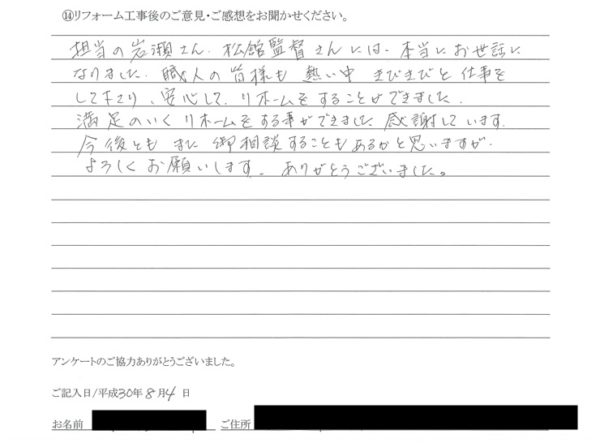 ⑭リフォーム工事後のご意見・ご感想をお聞かせください。
担当の岩瀬さん、松館監督さんには、本当にお世話に
なりました。職人の皆様も 熱い中 きびきびと仕事を
して下さり、安心して、リホームをすることができました。
満足のいくリホームをする事ができました。感謝しています。
今後とも また 御相談することもあるかと思いますが、
よろしくお願いします。ありがとうございました。
アンケートのご協力ありがとうございました。
ご記入日/平成30年8月4日
お名前 ご住所